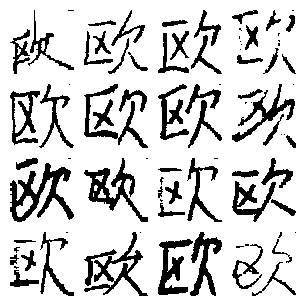 欧欧欧欧
欧欧欧欧
欧欧欧欧
欧欧欧欧